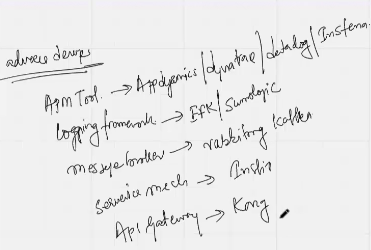 advance devops
APM Tool. → Appdynamics/dynatrace/datadog/Instena.
logging framework → EFK/Sumologic
message broker → rabbitmq kafka
service mech → Instio
Api Gateway → Kong